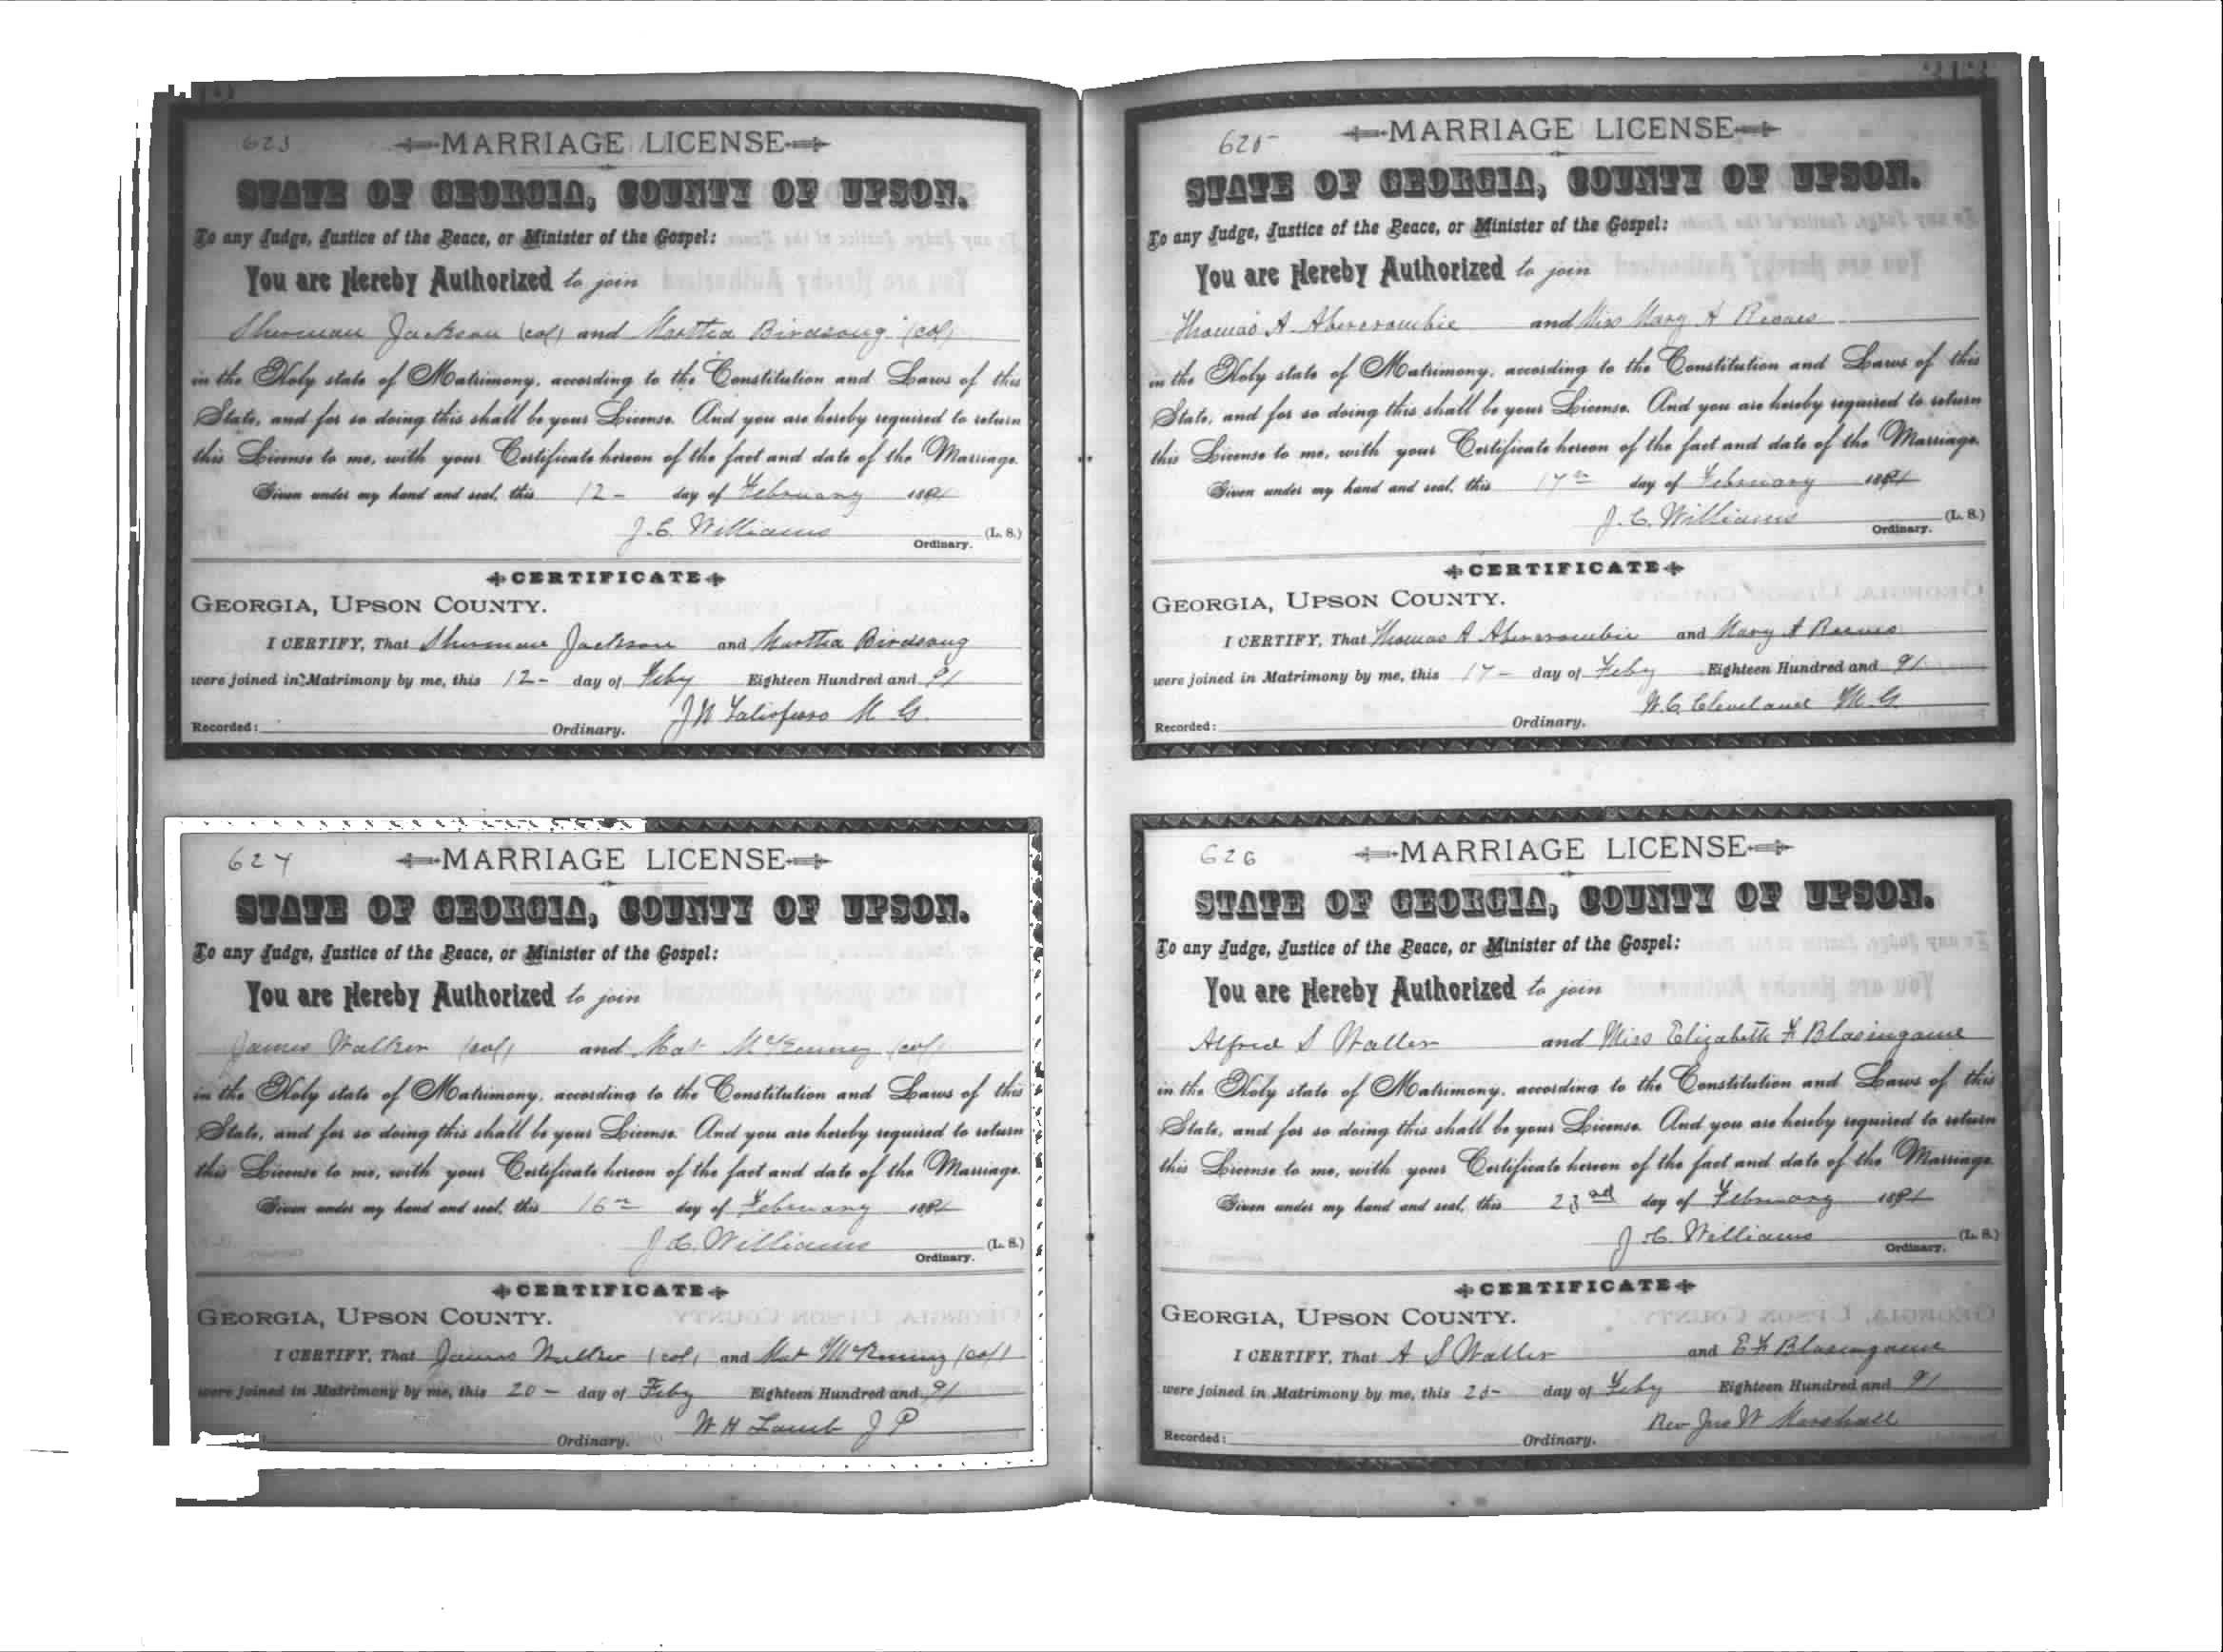 623
MARRIAGE LICENSE
STATE OF GEORGIA, COUNTY OF UPSON.
To any Judge, Justice of the Peace, or Minister of the Gospel:
You are Hereby Authorized to join
Sherman Jackson (col) and Martha Birdsong (col)
in the Holy state of Matrimony, according to the Constitution and Laws of this
State, and for so doing this shall be your License. And you are hereby required to return
this License to me, with your Certificate hereon of the fact and date of the Marriage.
Given under my hand and seal, this 12- day of February 1891
J. C. Williams (L. S.)
Ordinary.
CERTIFICATE
GEORGIA, UPSON COUNTY.
I CERTIFY, That Sherman Jackson and Martha Birdsong
were joined in Matrimony by me, this 12- day of Feby Eighteen Hundred and 91
J W Taliaferro M G.
Recorded: Ordinary.
624
MARRIAGE LICENSE
STATE OF GEORGIA, COUNTY OF UPSON.
To any Judge, Justice of the Peace, or Minister of the Gospel:
You are Hereby Authorized to join
James Walker (col) and Mat McKenney (col)
in the Holy state of Matrimony, according to the Constitution and Laws of this
State, and for so doing this shall be your License. And you are hereby required to return
this License to me, with your Certificate hereon of the fact and date of the Marriage.
Given under my hand and seal, this 16th day of February 1891
J. C. Williams (L. S.)
Ordinary.
CERTIFICATE
GEORGIA, UPSON COUNTY.
I CERTIFY, That James Walker (col) and Mat McKenney (col)
were joined in Matrimony by me, this 20- day of Feby Eighteen Hundred and 91
W H Lamb J P
Ordinary.
625
MARRIAGE LICENSE
STATE OF GEORGIA, COUNTY OF UPSON.
To any Judge, Justice of the Peace, or Minister of the Gospel:
You are Hereby Authorized to join
Thomas A Abercrombie and Miss Mary A Reeves
in the Holy state of Matrimony, according to the Constitution and Laws of this
State, and for so doing this shall be your License. And you are hereby required to return
this License to me, with your Certificate hereon of the fact and date of the Marriage.
Given under my hand and seal, this 17th day of February 1891
J. C. Williams (L. S.)
Ordinary.
CERTIFICATE
GEORGIA, UPSON COUNTY.
I CERTIFY, That Thomas A Abercrombie and Mary A Reeves
were joined in Matrimony by me, this 17- day of Feby Eighteen Hundred and 91
W. C. Cleveland M. G.
Recorded: Ordinary.
626
MARRIAGE LICENSE
STATE OF GEORGIA, COUNTY OF UPSON.
To any Judge, Justice of the Peace, or Minister of the Gospel:
You are Hereby Authorized to join
Alfred S Waller and Miss Elizabeth F Blasingame
in the Holy state of Matrimony, according to the Constitution and Laws of this
State, and for so doing this shall be your License. And you are hereby required to return
this License to me, with your Certificate hereon of the fact and date of the Marriage.
Given under my hand and seal, this 23rd day of February 1891
J. C. Williams (L. S.)
Ordinary.
CERTIFICATE
GEORGIA, UPSON COUNTY.
I CERTIFY, That A S Waller and E F Blasingame
were joined in Matrimony by me, this day of Feby Eighteen Hundred and 91
Rev Jno W Marshall
Recorded: Ordinary.